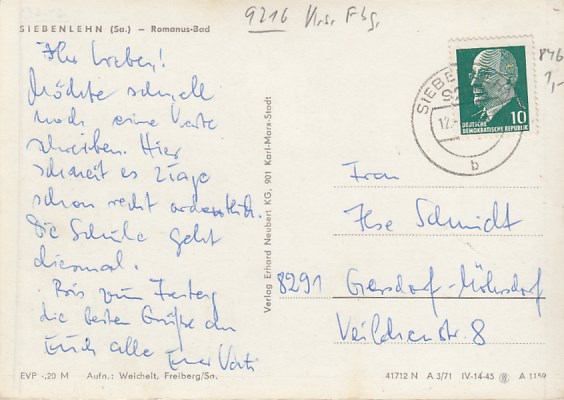 SIEBENLEHN (Sa.) – Romanus-Bad
Ihr Lieben!
Möchte schnell
noch eine Karte
schreiben. Hier
schneit es 2 Tage
schon recht ordentlich.
Die Schule geht
diesmal.
Bis zum Freitag
die besten Grüße an
Euch alle Euer Vati
EVP -,20 M Aufn.: Weichelt, Freiberg/Sa.
Verlag Erhard Neubert KG, 901 Karl-Marx-Stadt
9216 Krs. Fbg.
846
1,-
SIEBE
12.
b
10
DEUTSCHE
DEMOKRATISCHE REPUBLIK
Frau
Ilse Schmidt
8291 Gersdorf-Möhrsdorf
Veilchenstr. 8
41712 N A 3/71 IV-14-45 A 1159